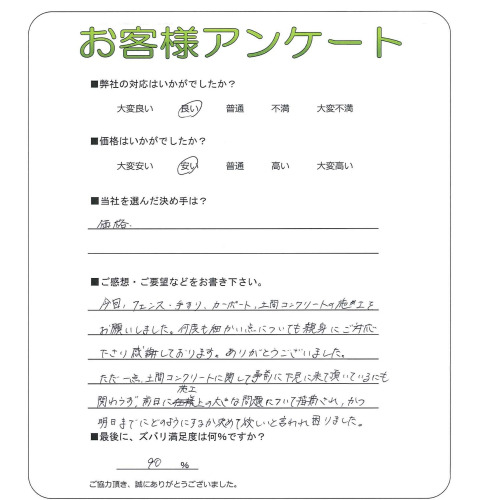 お客様アンケート
■弊社の対応はいかがでしたか？
大変良い 良い 普通 不満 大変不満
■価格はいかがでしたか？
大変安い 安い 普通 高い 大変高い
■当社を選んだ決め手は？
価格.
■ご感想・ご要望などをお書き下さい。
今回、フェンス・手すり、カーポート、土間コンクリートの施工を
お願いしました。何度も細かい点についても親身にご対応
下さり感謝しております。ありがとうございました。
ただ一点、土間コンクリートに関して事前に下見に来て頂いているにも
関わらず、前日に施工上の大きな問題について指摘され、かつ
明日までにどのようにするか決めて欲しいと言われ困りました。
■最後に、ズバリ満足度は何%ですか？
90 %
ご協力頂き、誠にありがとうございました。